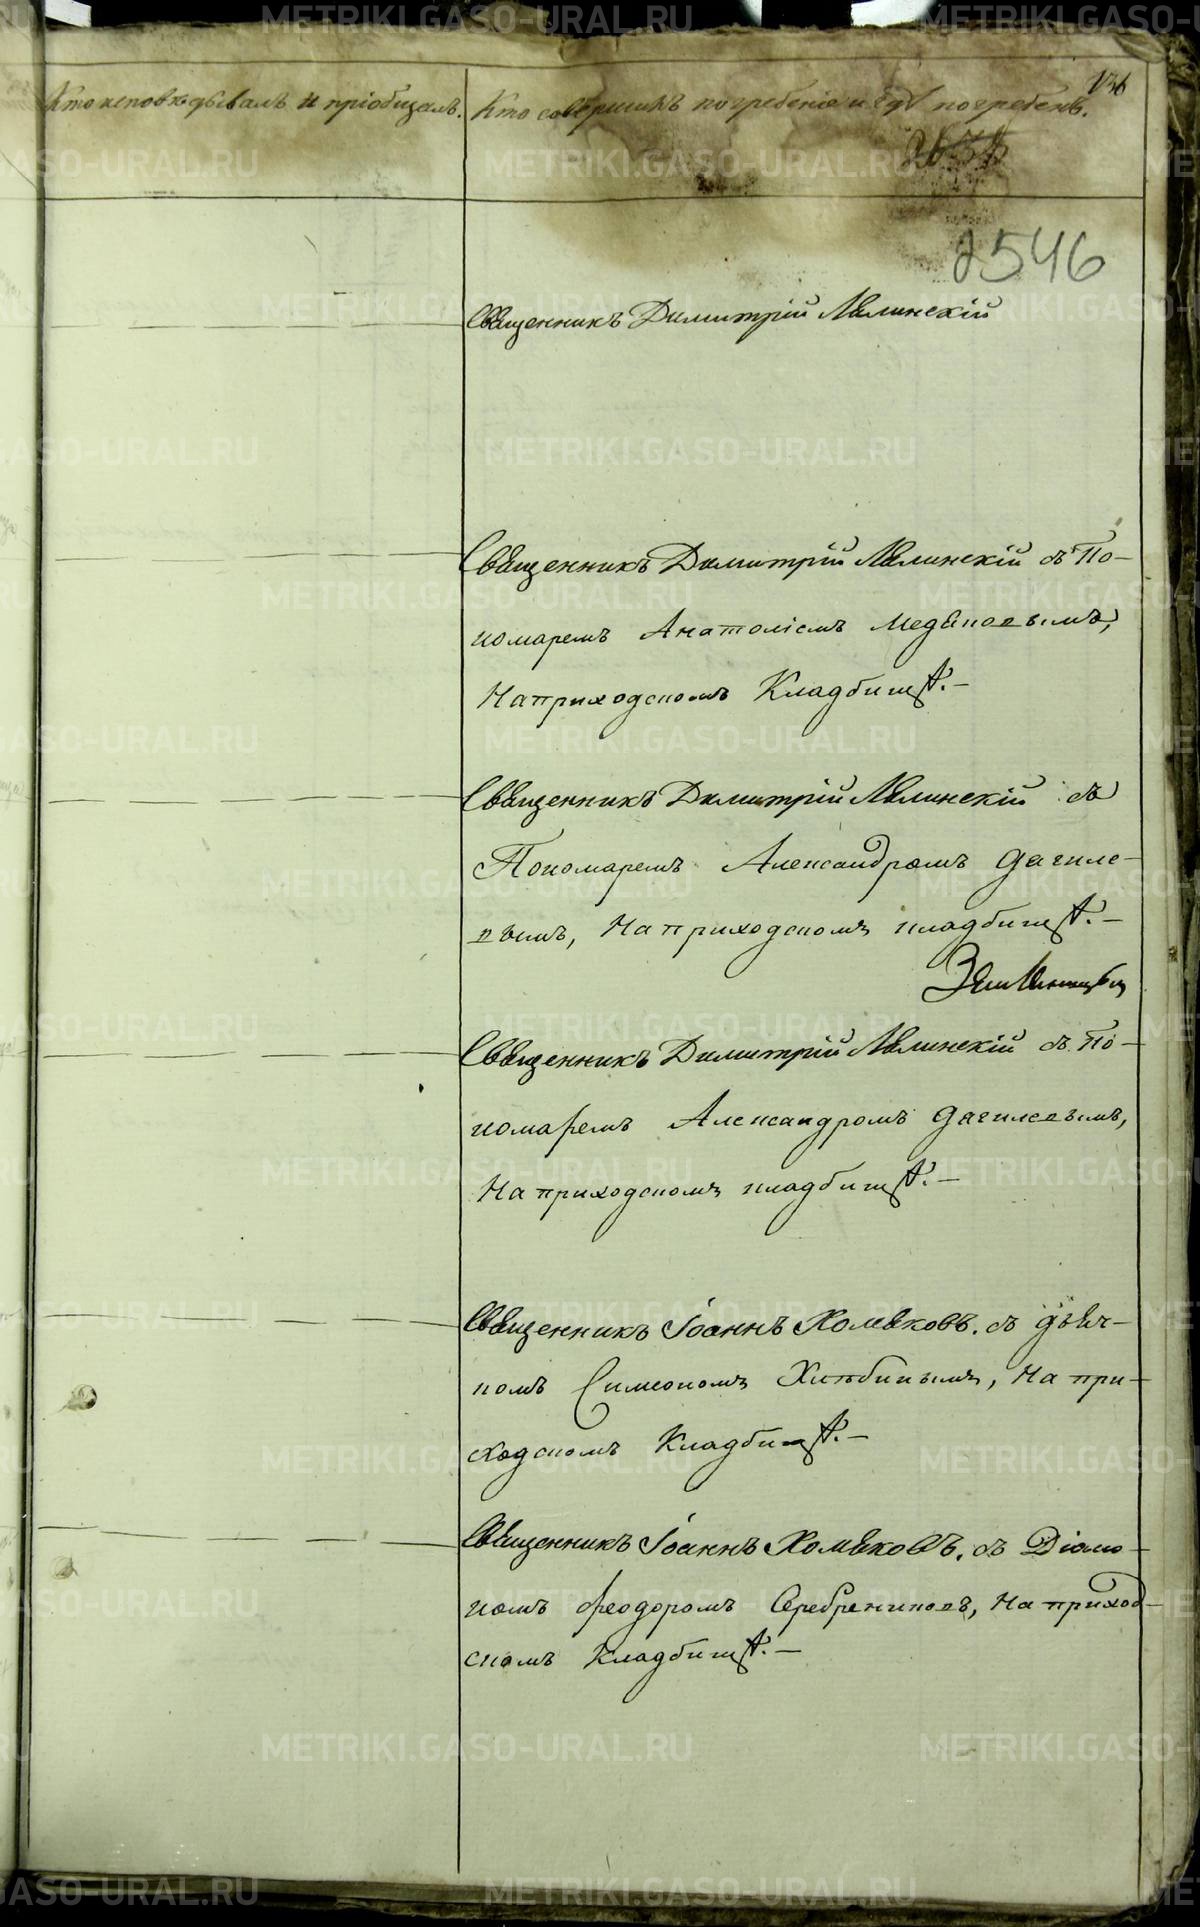 136
Кто исповѣдывалъ и пріобщалъ.
Кто совершилъ погребеніе и гдѣ погребенъ.
2546
Священникъ Димитрій Явлинскій
Священникъ Димитрій Явлинскій съ По-
номаремъ Анатоліемъ
На приходскомъ Кладбищѣ.—
Священникъ Димитрій Явлинскій съ
Пономаремъ Александромъ Дягиле-
вымъ, На приходскомъ кладбищѣ.—
Священникъ Димитрій Явлинскій съ По-
номаремъ Александромъ Дягилевымъ,
На приходскомъ кладбищѣ.—
Священникъ Іоаннъ Хомяковъ. съ Дьяч-
комъ Симеономъ Хлѣбинымъ, На при-
ходскомъ Кладбищѣ.—
Священникъ Іоаннъ Хомяковъ. съ Діако-
номъ Феодоромъ На приход-
скомъ Кладбищѣ.—
METRIKI.GASO-URAL.RU